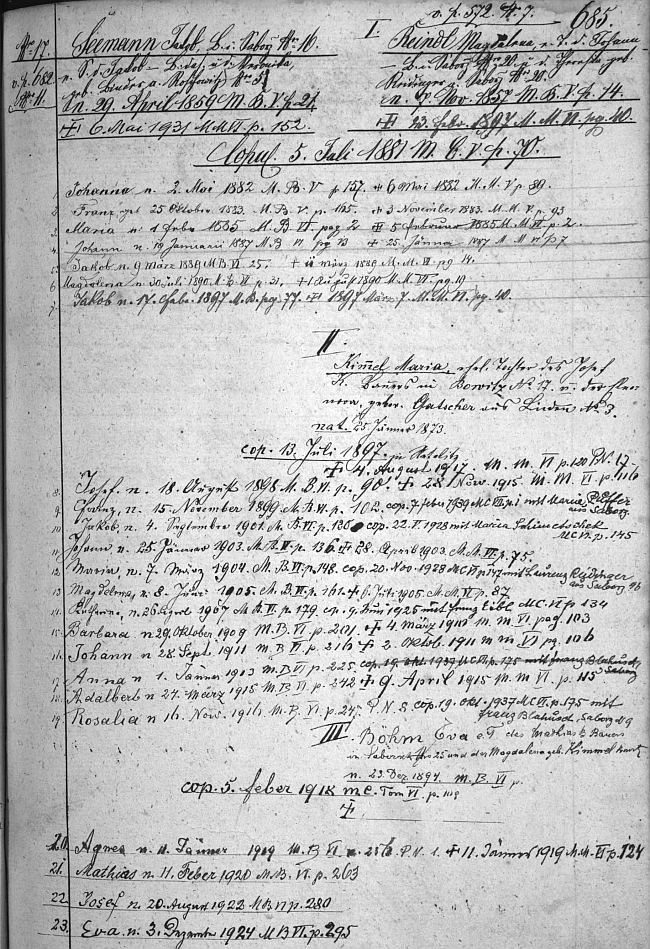 v. p. 572. Nr. 7. 685.
Nro 17. Seemann Jakob, B. i. Saborž Nr. 16. I. Reindl Magdalena, e. T. d. Johann
v. p. 682 e. S. d. Jakob B. das. u. d. Veronika, B. i. Saborž Nr. 20. u. d. Theresia geb.
Nr. 11. geb. Binder a. Nr. 5 Reidinger a. Saborž Nr. 20.
n. 29. April 1859 M. B. V. p. 21. n. Nov. 1857 M. B. V. p. 14.
+ 6 Mai 1931 M M VI p. 152. + 23. Febr. 1897. M. M. VI. pg. 40.
Copul. 5. Juli 1881 M. C. V. p. 70.
1 Johanna n. 2. Mai 1882 M. B. V p 157. + 6 Mai 1882 M. M. V p. 89.
2 Franz 25 Oktober 1883. M. B. V. p. 165. + 3 November 1883. M. M. V. p. 93
3 Maria n. 1 Febr 1885 M. B. VI. pag 2 + 5 Februar 1885 M. M VI p. 2.
4 Johann n. 19 Januarii 1887 M. B VI pg 13 + 25. Jänner 1887 M. M VI p 7
5 Jakob n. 9 März 1889 M. B. VI. 25. + 11 März 1889 M. M. VI. pg 14.
6 Magdalena n. 30 Juli 1890 M. B. VI p. 31. + 1 August 1890 M. M. VI. pg. 19
7. Jakob n. 17. Febr. 1897 M. B. pag. 77. + 1897 März 7. M. M. VI. pg. 40.
II.
Kimel Maria, ehel. Tochter des Josef
K. Bauers in Bowitz No. 17. u. der Eleo-
nora, gebor. Gatscher aus Linden No 3.
nat. 25. Jänner 1873.
cop. 13. Juli 1897. in
+ 4. August 1917. M. M. VI p. 120 P.N. 17
8. Josef n. 18. August 1898 M. B. VI. p. 90. + 28 Nov. 1915 M. M. VI. p. 116
9. Franz, n. 15. November 1899 M. B. VI. p. 102. cop. 7 feber 1939 MC VII p. 1 mit Maria
aus Saborž
10. Jakob, n. 4. September 1901. M. B. VI p. cop. 22. V. 1928 mit Maria
MC VI p. 145
11. Johann n. 25. Jänner 1903. M. B. VI. p. 136 + 28. April 1903. M. M. VI p. 75.
12 Maria, n. 7. März 1904. M. B. VI p. 148. cop. 20. Nov. 1928 MC VI p 147 mit Laurenz Reidinger
aus Saborž 46
13 Magdalena, n. 8. 1905. M. B. VI p. 161. + 6. 1905. M. M. VI p. 87
14 n. 26. April 1907 M. B. VI. p. 179. cop. 9. Juni 1925 mit Franz Eibl MC. VI p 134
15 Barbara n 29. Oktober 1909 M. B. VI p. 201. + 4. März 1910 M. M. VI. pag. 103
16. Johann n 28 Sept. 1911 M. B VI. p. 216 + 2. Oktob. 1911 M M VI pg. 106
17. Anna n 1. Jänner 1913 M. B VI p. 225 cop. 19. okt 1937 MC VI p. 175 mit Franz Blahusch, Saborž
18. Adalbert n 27. März 1915 M. B. VI p. 242 + 9. April 1915 M. M VI. p. 115
19. Rosalia n 16. Nov. 1916 M. B. VI p. 247. P. N. 8 cop. 19. okt. 1937 MC VI. p. 175 mit
Franz Blahusch, Saborž N 9
III. Böhm Eva e. T. des Mathias B. Bauers
in No 25 und der Magdalena geb. Kimmel
n. 23. Dez. 1894. M. B. VI p.
cop. 5. feber 1918 M. C. Tom VI. p. 119
+
20. Agnes n. 11. Jänner 1919 M. B VI p. 256 P. N. 1. + 11. Jänner 1919 M. M. VI p. 124
21. Mathias n. 11. Feber 1920 M. B. VI. p. 263
22. Josef n. 20. August 1922 M B VI p. 280
23. Eva n. 3. Dezember 1924 M B VI. p. 295